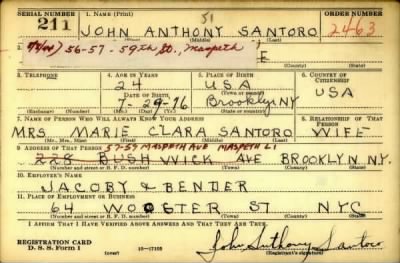 SERIAL NUMBER 1. NAME (Print) ORDER NUMBER
211 JOHN ANTHONY SANTORO 2463
51
(First) (Middle) (Last)
56-57 - 59th St., Maspeth
E
(Town) (County) (State)
3. TELEPHONE 4. AGE IN YEARS 5. PLACE OF BIRTH 6. COUNTRY OF CITIZENSHIP
24 USA
DATE OF BIRTH Brooklyn NY USA
7-29-16
(Exchange) (Number) (Mo.) (Day) (Yr.) (Town or county) (State or country)
7. NAME OF PERSON WHO WILL ALWAYS KNOW YOUR ADDRESS 8. RELATIONSHIP OF THAT PERSON
MRS MARIE CLARA SANTORO WIFE
(Mr., Mrs., Miss) (First) (Middle) (Last)
9. ADDRESS OF THAT PERSON 57-57 MASPETH AVE MASPETH L I
228 BUSHWICK AVE BROOKLYN N.Y.
(Number and street or R. F. D. number) (Town) (County) (State)
10. EMPLOYER'S NAME
JACOBY & BENDER
11. PLACE OF EMPLOYMENT OR BUSINESS
64 WOOSTER ST NYC
(Number and street or R. F. D. number) (Town) (County) (State)
I AFFIRM THAT I HAVE VERIFIED ABOVE ANSWERS AND THAT THEY ARE TRUE.
REGISTRATION CARD
D. S. S. Form 1 16-17105 John Anthony Santoro
(Registrant's signature)